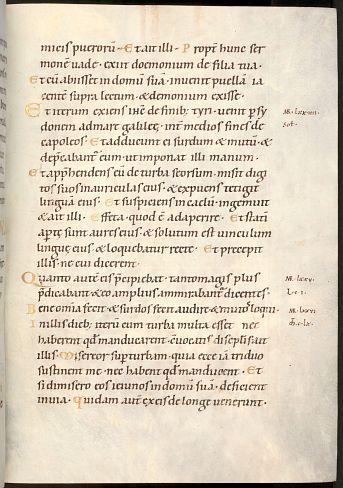 micis puerorũ. Et ait illi. Propt hunc ser
monẽ vade. exiit daemonium de filia tua.
Et cũ abisset in domũ suã. invenit puellã ia
centẽ supra lectum. & demonium exisse.
Et iterum exiens ihc de finib; tyri. venit p sy
donem ad mare galileę. int medios fines de
capoleos. Et adducunt ei surdum & mutũ. &
depcabant eum. ut imponat illi manum.
Et apphendens eũ de turba seorsum. misit digi
tos suos in auriculas eius. & expuens tetigit
linguã eius. Et suspiciens in caelũ. ingemuit
& ait illi. Effeta. quod ẽ adaperire. Et stati
aptę sunt aures eius. & solutum est vinculum
linguę eius. & loquebatur recte. Et precepit
illis. ne cui dicerent.
Quanto autẽ eis pcipiebat. tanto magis plus
pdicabant. & eo amplius ammirabant dicentes.
Bene omia fecit. & surdos fecit audire. & mutos loqui.
In illis dieb; iterũ cum turba multa esset nec
haberent qd manducarent. cuocatis discipulis ait
illis. Misereor sup turbam. quia ecce iã triduo
sustinent me. nec habent qd manducent. Et
si dimisero eos ieiunos in domũ suã. deficient
in via. quidam autẽ ex eis de longe venerunt.